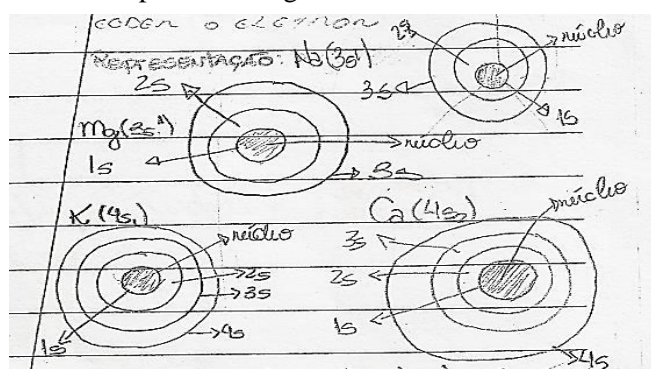 CEDER O ELETRON
REPRESENTAÇÃO: Na(3s¹)
2s
núcleo
3s
1s
2s
Mg(3s¹)
1s
núcleo
3s
K(4s₁)
núcleo
2s
3s
4s
1s
Ca(4s₂)
núcleo
3s
2s
1s
4s